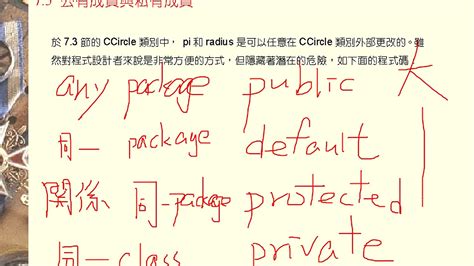 7.5 公有成員與私有成員
於 7.3 節的 CCircle 類別中， pi 和 radius 是可以任意在 CCircle 類別外部更改的。雖
然對程式設計者來說是非常方便的方式，但隱藏著潛在的危險，如下面的程式碼
any package public 大
同一 package default
關係 同一package protected
同一 class private